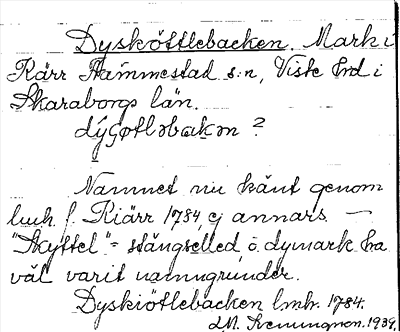 Dysköttlebacken. Mark i
Kärr Flämmestad s:n, Viste hrd i
Skaraborgs län.
dýςøtləbakən ?
Namnet nu känt genom
lmh f. Kiärr 1784, ej annars —
"Skyttel" = stängselled o. dymark ha
väl varit namngrunder.
Dyskiötlebacken lmh. 1784.
J M. Svenningson. 1939